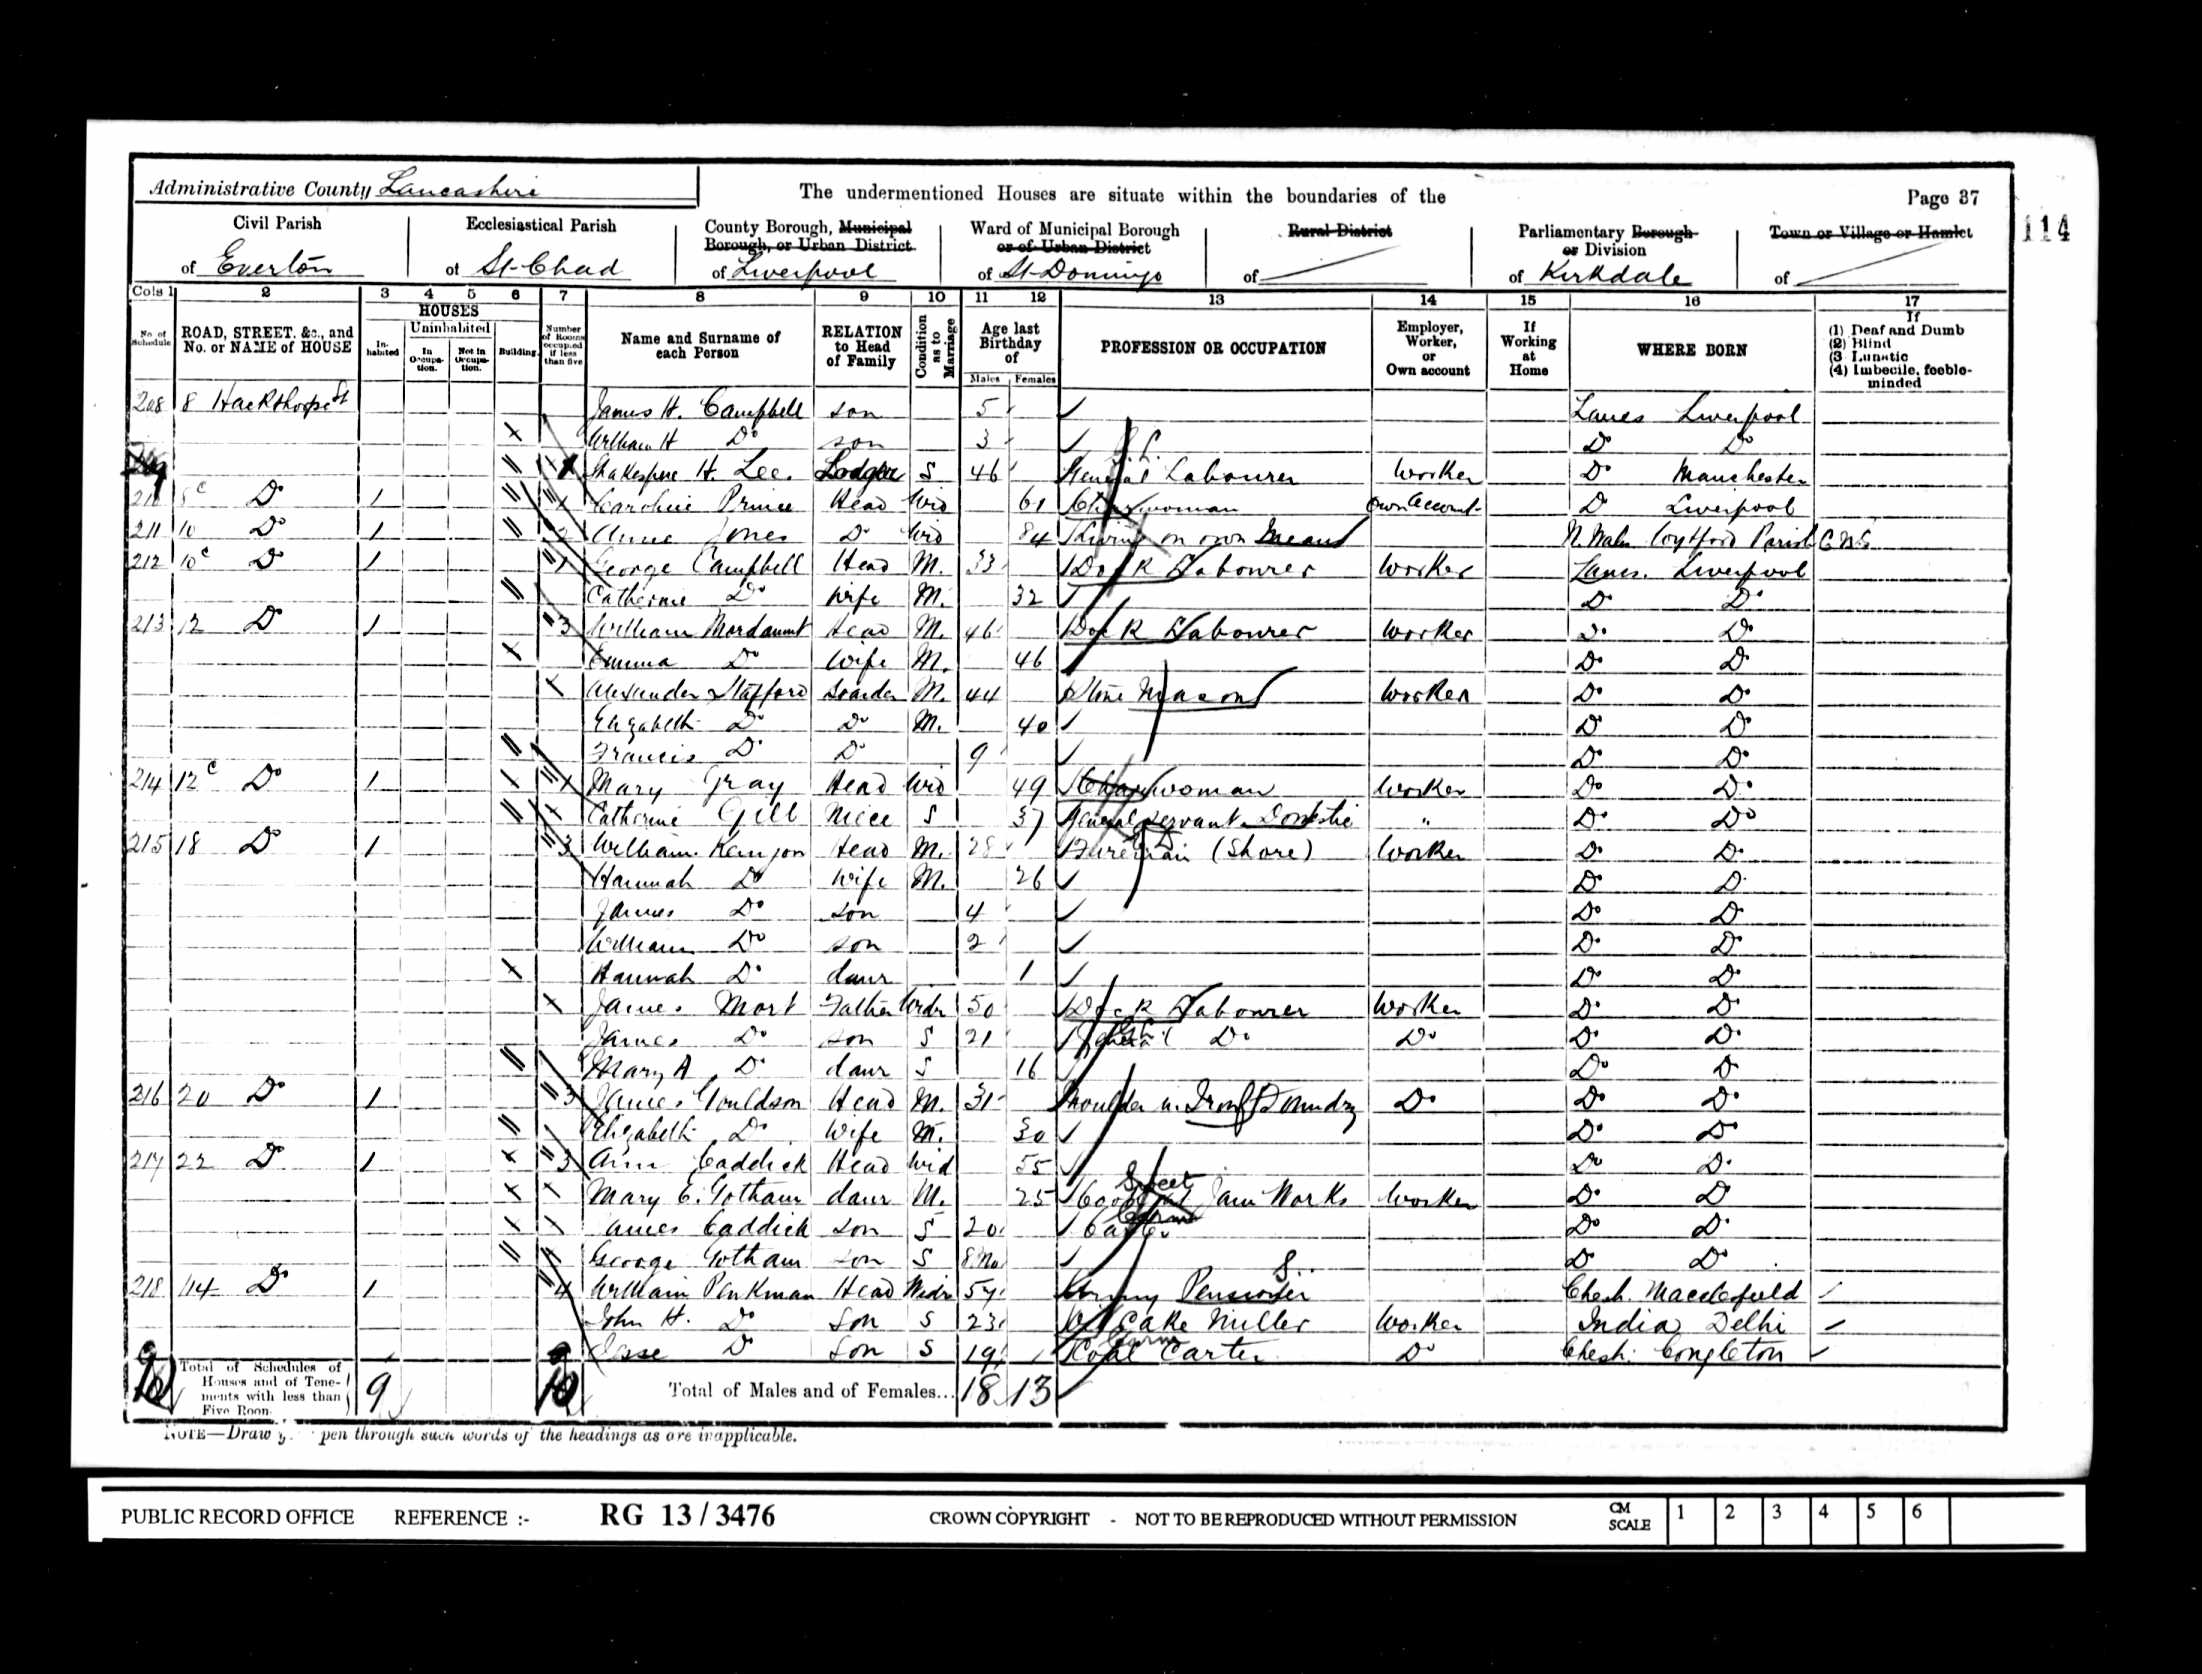 Administrative County Lancashire
The undermentioned Houses are situate within the boundaries of the
Page 37
114
Civil Parish of Everton
Ecclesiastical Parish of St Chad
County Borough, Municipal Borough, or Urban District of Liverpool
Ward of Municipal Borough or of Urban District of St Domingo
Rural District of
Parliamentary Borough or Division of Kirkdale
Town or Village or Hamlet of
Cols 1 2 3 4 5 6 7 8 9 10 11 12 13 14 15 16 17
No. of Schedule
ROAD, STREET, &c., and No. or NAME of HOUSE
HOUSES
Inhabited
Uninhabited
In Occupation.
Not in Occupation.
Building.
Number of Rooms occupied if less than five
Name and Surname of each Person
RELATION to Head of Family
Condition as to Marriage
Age last Birthday of
Males Females
PROFESSION OR OCCUPATION
Employer, Worker, or Own account
If Working at Home
WHERE BORN
If (1) Deaf and Dumb (2) Blind (3) Lunatic (4) Imbecile, feeble-minded
208 8 Hackthorpe St James H. Campbell son 5 Lancs Liverpool
William H Do son 3 Do Do
209 1 Shakespere H. Lee. Lodger S 46 General Labourer Worker Do Manchester
210 8c Do 1 1 Caroline Prince Head Wid 61 Charwoman Own Account Do Liverpool
211 10 Do 1 2 Anne Jones Do Wid 84 Living on own Means N. Wales Parish
212 10c Do 1 1 George Campbell Head M. 33 Dock Labourer Worker Lancs. Liverpool
Catherine Do Wife M. 32 Do Do
213 12 Do 1 3 William Mordaunt Head M. 46 Dock Labourer Worker Do Do
Emma Do Wife M. 46 Do Do
Alexander Stafford Boarder M. 44 Stone Mason Worker Do Do
Elizabeth Do Do M. 40 Do Do
Francis Do Do 9 Do Do
214 12c Do 1 1 Mary Gray Head Wid 49 Charwoman Worker Do Do
Catherine Gill Niece S 37 General Servant Domestic " Do Do
215 18 Do 1 3 William Kenyon Head M. 28 Fireman (Shore) Worker Do Do
Hannah Do Wife M. 26 Do Do
James Do son 4 Do Do
William Do son 2 Do Do
Hannah Do daur 1 Do Do
James Mort Father Widr 50 Dock Labourer Worker Do Do
James Do son S 21 General Do Do Do Do
Mary A Do daur S 16 Do Do
216 20 Do 1 3 James Gouldson Head M. 31 Moulder in Iron Foundry Do Do Do
Elizabeth Do Wife M. 30 Do Do
217 22 Do 1 3 Ann Caddick Head Wid 55 Do Do
Mary E. Gotham daur M. 25 Sweet Jam Works Worker Do Do
James Caddick son S 20 Carter Do Do
George Gotham son S 8 Mo Do Do
218 114 Do 1 4 William Penkman Head Widr 57 Army Pensioner Chesh. Macclesfield
John H. Do Son S 23 Oil Cake Miller Worker India Delhi
Jesse Do Son S 19 Coal Carter Do Chesh. Congleton
Total of Schedules of Houses and of Tenements with less than Five Rooms 9
Total of Males and of Females... 18 13
NOTE—Draw pen through such words of the headings as are inapplicable.
PUBLIC RECORD OFFICE REFERENCE :- RG 13 / 3476 CROWN COPYRIGHT - NOT TO BE REPRODUCED WITHOUT PERMISSION CM SCALE 1 2 3 4 5 6